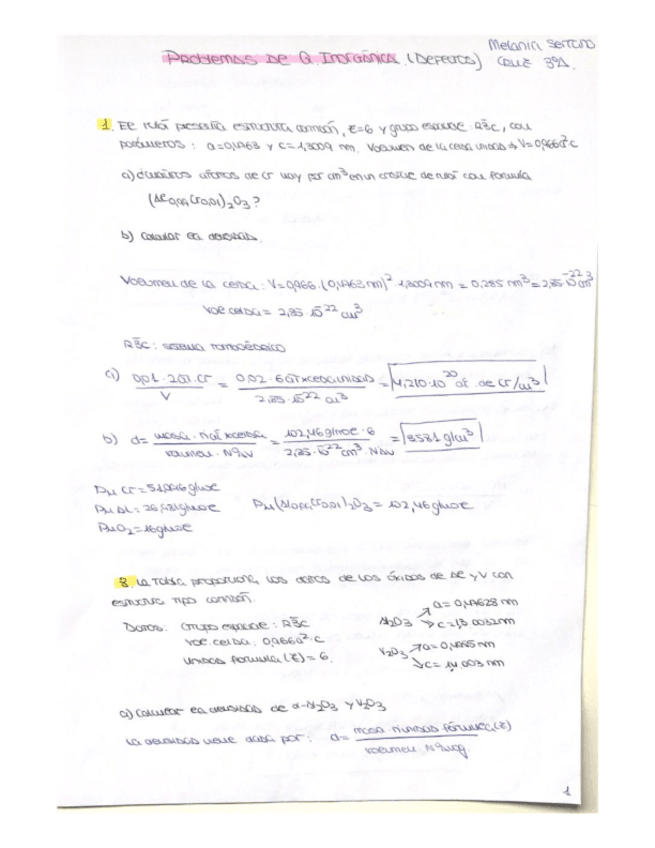 Problemas de Q. Inorgánica (Defectos) Melania Serrano
Cruz 3ºA.
1. El rubí presenta estructura corindón, z=6 y grupo espacial R3̄c, con
parámetros: a=0,4763 y c=1,3009 nm. Volumen de la celda unidad → V=0,866a²c
a) ¿cuántos átomos de Cr hay por cm³ en un cristal de rubí con fórmula
(Al0,99Cr0,01)2O3?
b) calcular la densidad.
Volumen de la celda: V=0,866·(0,4763 nm)²·1,3009 nm = 0,285 nm³ = 2,85·10⁻²² cm³
Vol celda = 2,85·10⁻²² cm³
R3̄C: sistema romboédrico
a) 0,01·2at.Cr / V = 0,02·6at×celda unidad / 2,85·10⁻²² cm³ = 4,210·10²⁰ at. de Cr/cm³
b) d = masa · / volumen · NºAv = 102,46g/mol·6 / 2,85·10⁻²² cm³·NAv = 3581 g/cm³
Pm Cr = 51,996g/mol
Pm Al = g/mol Pm (Al0,99Cr0,01)2O3 = 102,46g/mol
Pm O2 = 16g/mol
8. La tabla proporciona los datos de los óxidos de Al y V con
estructura tipo corindón.
Datos: Grupo espacial: R3̄C Al2O3 → a = 0,47628 nm
→ c = 1,3 0032nm
Vol celda: 0,866a²·c V2O3 → a = nm
unidad fórmula (z) = 6. → c = 1,4 003 nm
a) Calcular la densidad de α-Al2O3 y V2O3
La densidad viene dada por: d = masa · nunidad fórmula(z) / volumen · NºAvog.
1